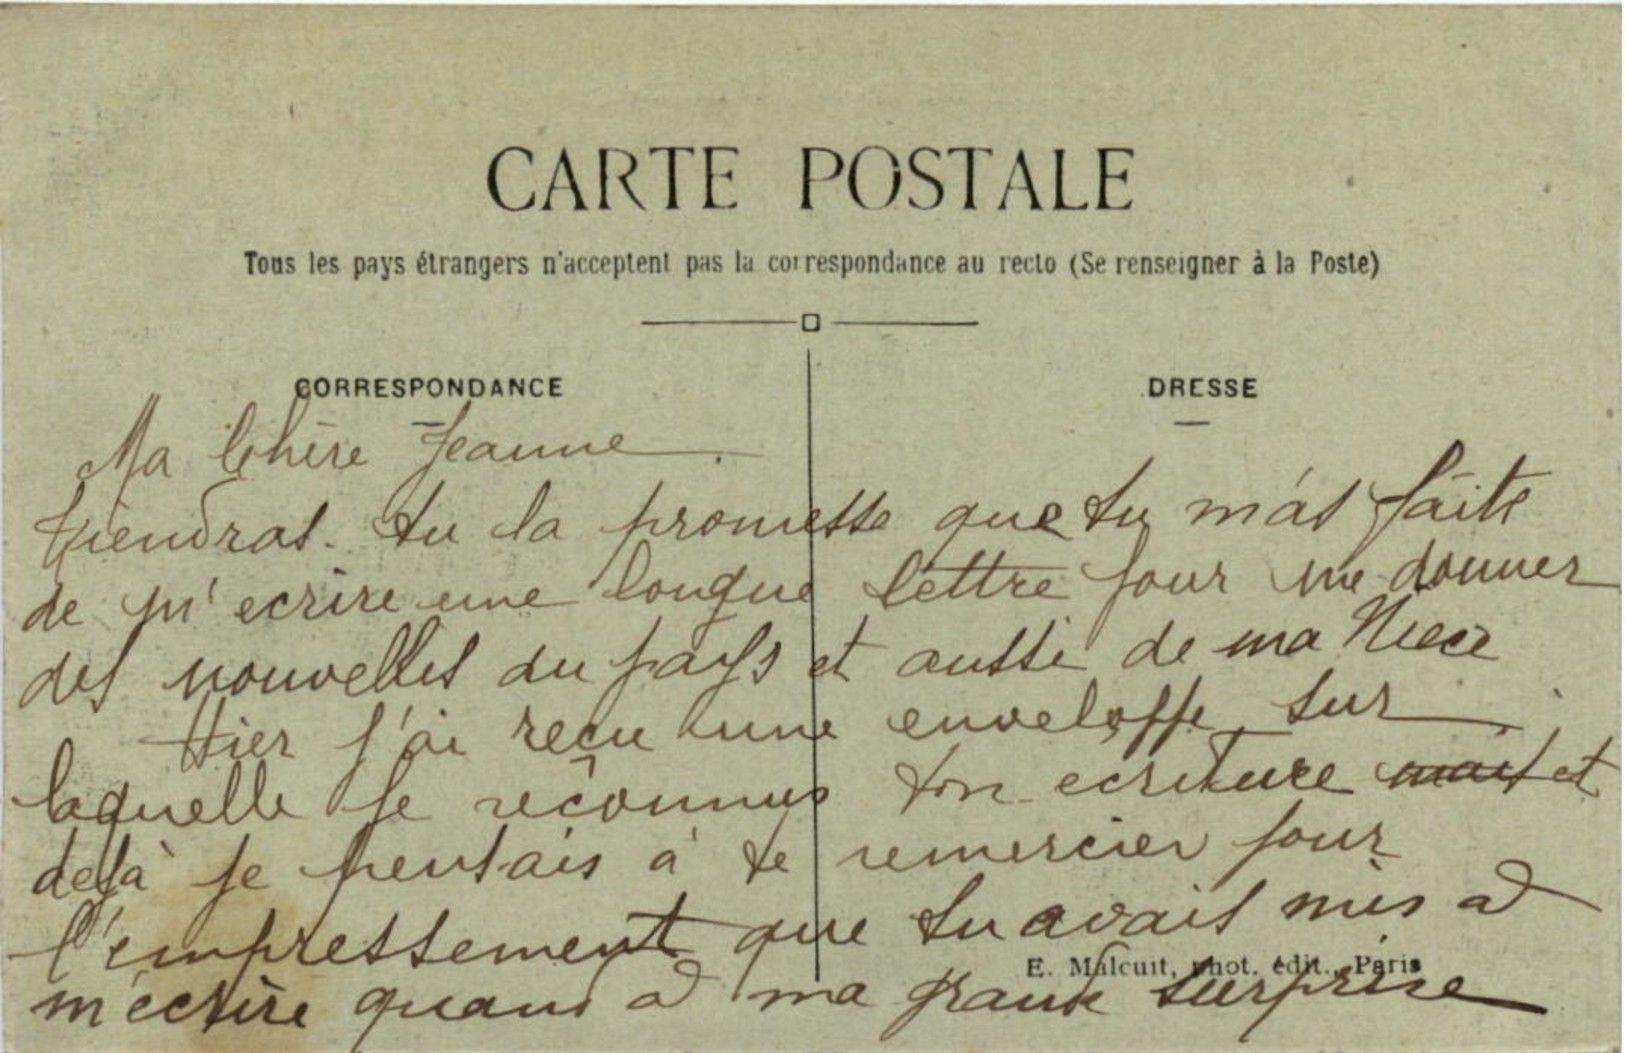 CARTE POSTALE
Tous les pays étrangers n'acceptent pas la correspondance au recto (Se renseigner à la Poste)
CORRESPONDANCE
DRESSE
Ma Chère Jeanne.
Tiendras-tu la promesse que tu m'as faite
de m'ecrire une longue lettre pour me donner
des nouvelles du pays et aussi de ma Niece
Hier j'ai reçu une enveloppe sur
laquelle je reconnus ton ecriture mais et
dejà je pensais à te remercier pour
l'empressement que tu avais mis à
m'ecrire quand à ma grande surprise
E. Malcuit, phot. édit., Paris